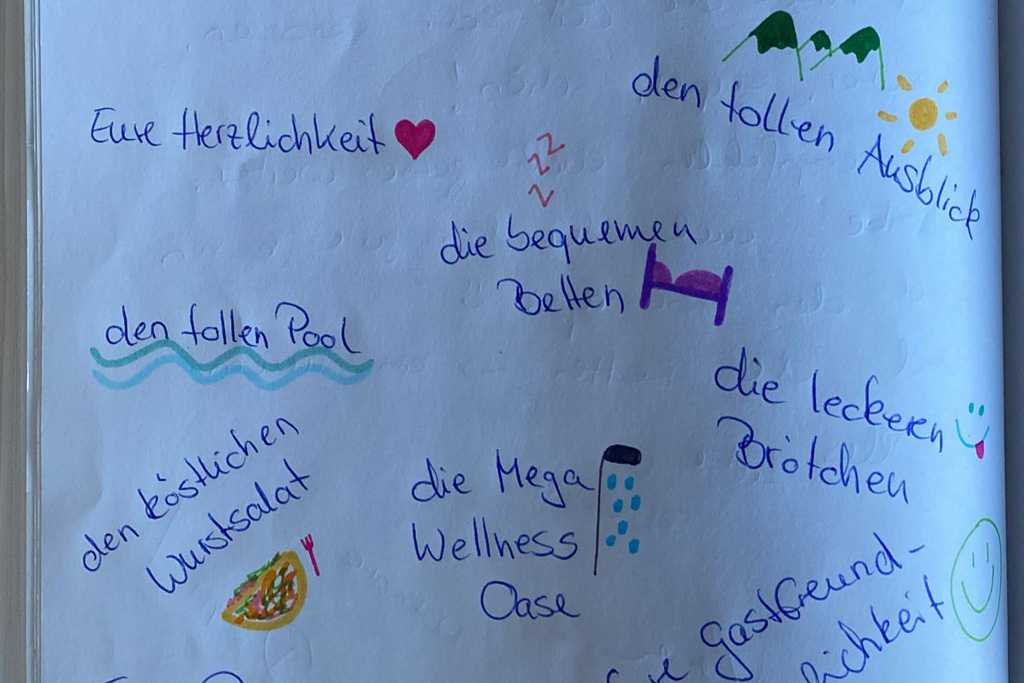 den tollen
Ausblick
Eure Herzlichkeit
zzz
die bequemen
Betten
den tollen Pool
die leckeren
Brötchen
den köstlichen
Wurstsalat
die Mega
Wellness
Oase
gastfreund-
lichkeit